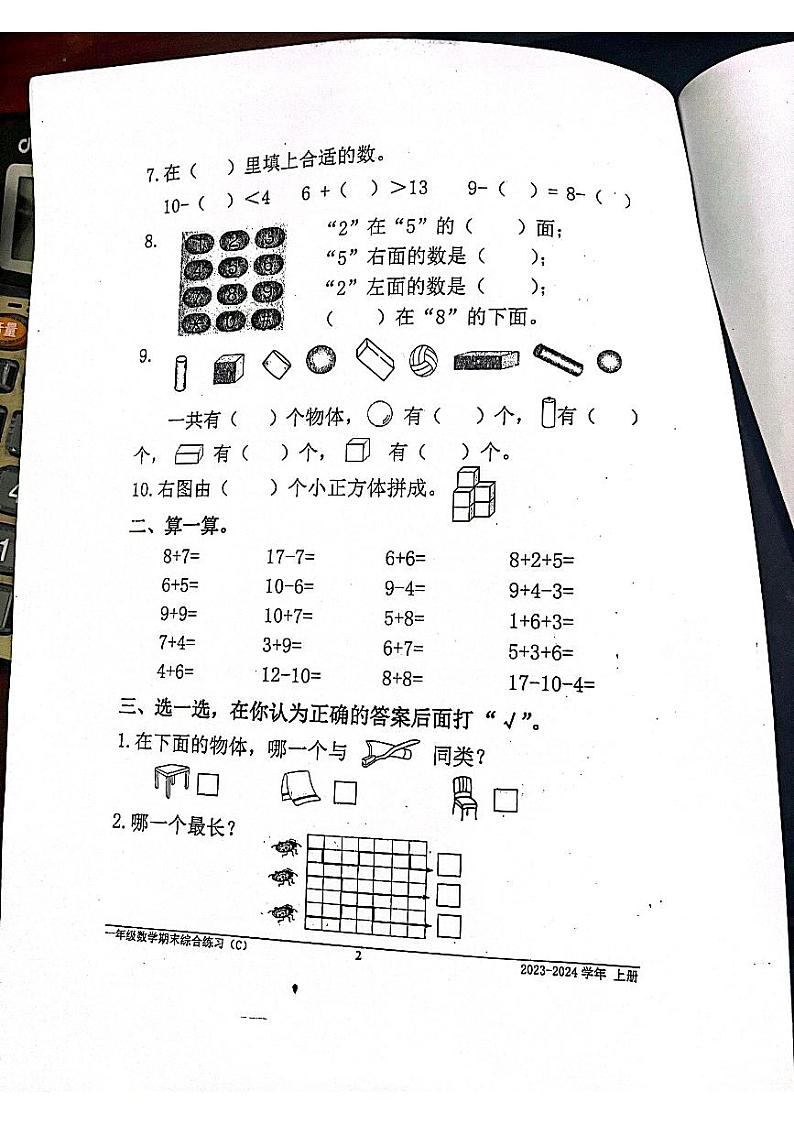 7.在（ ）里填上合适的数。
10-（ ）＜4 6 +（ ）＞13 9-（ ）= 8-（ ）
8.
1 2 3
4 5 6
7 8 9
* 0 #
“2”在“5”的（ ）面；
“5”右面的数是（ ）；
“2”左面的数是（ ）；
（ ）在“8”的下面。
9.
一共有（ ）个物体， 有（ ）个， 有（ ）
个， 有（ ）个， 有（ ）个。
10.右图由（ ）个小正方体拼成。
二、算一算。
8+7= 17-7= 6+6= 8+2+5=
6+5= 10-6= 9-4= 9+4-3=
9+9= 10+7= 5+8= 1+6+3=
7+4= 3+9= 6+7= 5+3+6=
4+6= 12-10= 8+8= 17-10-4=
三、选一选，在你认为正确的答案后面打“√”。
1.在下面的物体，哪一个与 同类？
2.哪一个最长？
一年级数学期末综合练习（C） 2 2023-2024学年 上册
音量
4
1